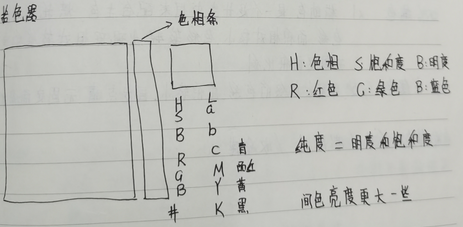 拾色器
色相条
H L
S a
B b
C 青
R M
G Y 黄
B K 黑
#
H:色相 S 饱和度 B:明度
R:红色 G:绿色 B:蓝色
纯度 = 明度和饱和度
间色亮度更大一些